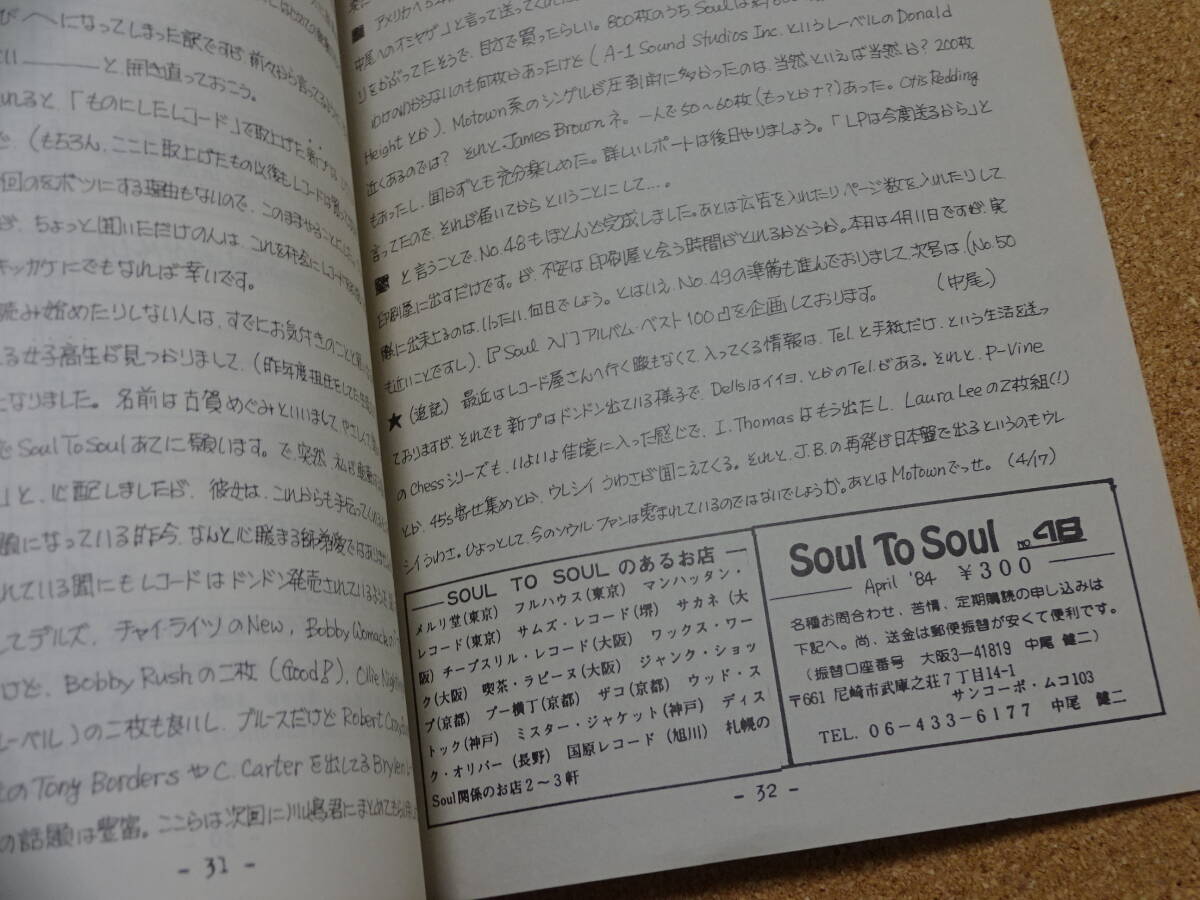 びへになってしまった訳ですが、前々から言ってるように
と、開き直っておこう。
れると、「ものにしたレコード」で取上げた新プは
で、(もちろん、ここに取上げたもの以後もレコードは
回のをボツにする理由もないので、このまま
が、ちょっと聞いただけの人は、これを
キッカケにでもなれば幸いです。
読み始めたりしない人は、すでにお気付きのことと
る女子高生が見つかりまして、(昨年度担任をした
になりました。名前は古賀めぐみといいまして、やさしくて
でSoul To Soulあてに願います。で、突然、私が
」と、心配しましたが、彼女は、これからも手伝ってくれる
になっている昨今、なんと心暖まる師弟愛ではありませんか
れている間にもレコードはドンドン発売されている
してデルズ、チャイライツのNew, Bobby Womackの
けど、Bobby Rushの二枚(Good!), Ollie
レーベル)の二枚も良いし、ブルースだけどRobert Cray
のTony BordersやC. Carterを出してる
の話題は豊富。ここらは次回に川嶋君にまとめてもらい
- 31 -
■ アメリカへ
中尾へのオミヤゲ」と言って送ってくれた
リをかぶってたそうで、目方で買ったらしい。800枚のうちSoulは約
わけのわからないのも何枚かあったけど(A-1 Sound Studios Inc.というレーベルのDonald
Heightとか)、Motown系のシングルが圧倒的に多かったのは、当然といえば当然か? 200枚
近くあるのでは? それと、James Brownネ。一人で50～60枚(もっとかナ?)あった。Otis Redding
もあったし、聞かずとも充分楽しめた。詳しいレポートは後日やりましょう。「LPは今度送るから」と
言ってたので、それが届いてからということにして…。
■ と言うことで、No.48もほとんど完成しました。あとは広告を入れたりページ数を入れたりして
印刷屋に出すだけです。が、不安は、印刷屋と会う時間がとれるかどうか。本日は4月11日ですが、実
際に出来上るのは、いったい、何日でしょう。とはいえ、No.49の準備も進んでおりまして、次号は、(No.50
も近いことですし)、『Soul入門アルバム・ベスト100』を企画しております。 (中尾)
★(追記) 最近はレコード屋さんへ行く暇もなくて、入ってくる情報は、Tel.と手紙だけ、という生活を送っ
ておりますが、それでも新プはドンドン出ている様子で、Dellsはイイヨ、とかのTel.がある。それと、P-Vine
のChessシリーズも、いよいよ佳境に入った感じで、I. Thomasはもう出たし、Laura Leeの2枚組(!)
とか、45s寄せ集めとか、ウレシイうわさが聞こえてくる。それと、J.B.の再発が日本盤で出るというのもウレ
シイうわさ。ひょっとして、今のソウル・ファンは恵まれているのではないでしょうか。あとはMotownでっせ。(4/17)
SOUL TO SOUL のあるお店
メルリ堂(東京) フルハウス(東京) マンハッタン・
レコード(東京) サムズ・レコード(堺) サカネ(大
阪) チープスリル・レコード(大阪) ワックス・ワー
ク(大阪) 喫茶・ラビーヌ(大阪) ジャンク・ショッ
プ(京都) プー横丁(京都) ザコ(京都) ウッド・ス
トック(神戸) ミスター・ジャケット(神戸) ディス
ク・オリバー(長野) 国原レコード(旭川) 札幌の
Soul関係のお店2～3軒
Soul To Soul no.48
April '84 ¥300
各種お問合わせ、苦情、定期購読の申し込みは
下記へ。尚、送金は郵便振替が安くて便利です。
(振替口座番号 大阪3-41819 中尾 健二)
〒661 尼崎市武庫之荘7丁目14-1
サンコーポ・ムコ103
TEL. 06-433-6177 中尾 健二
- 32 -